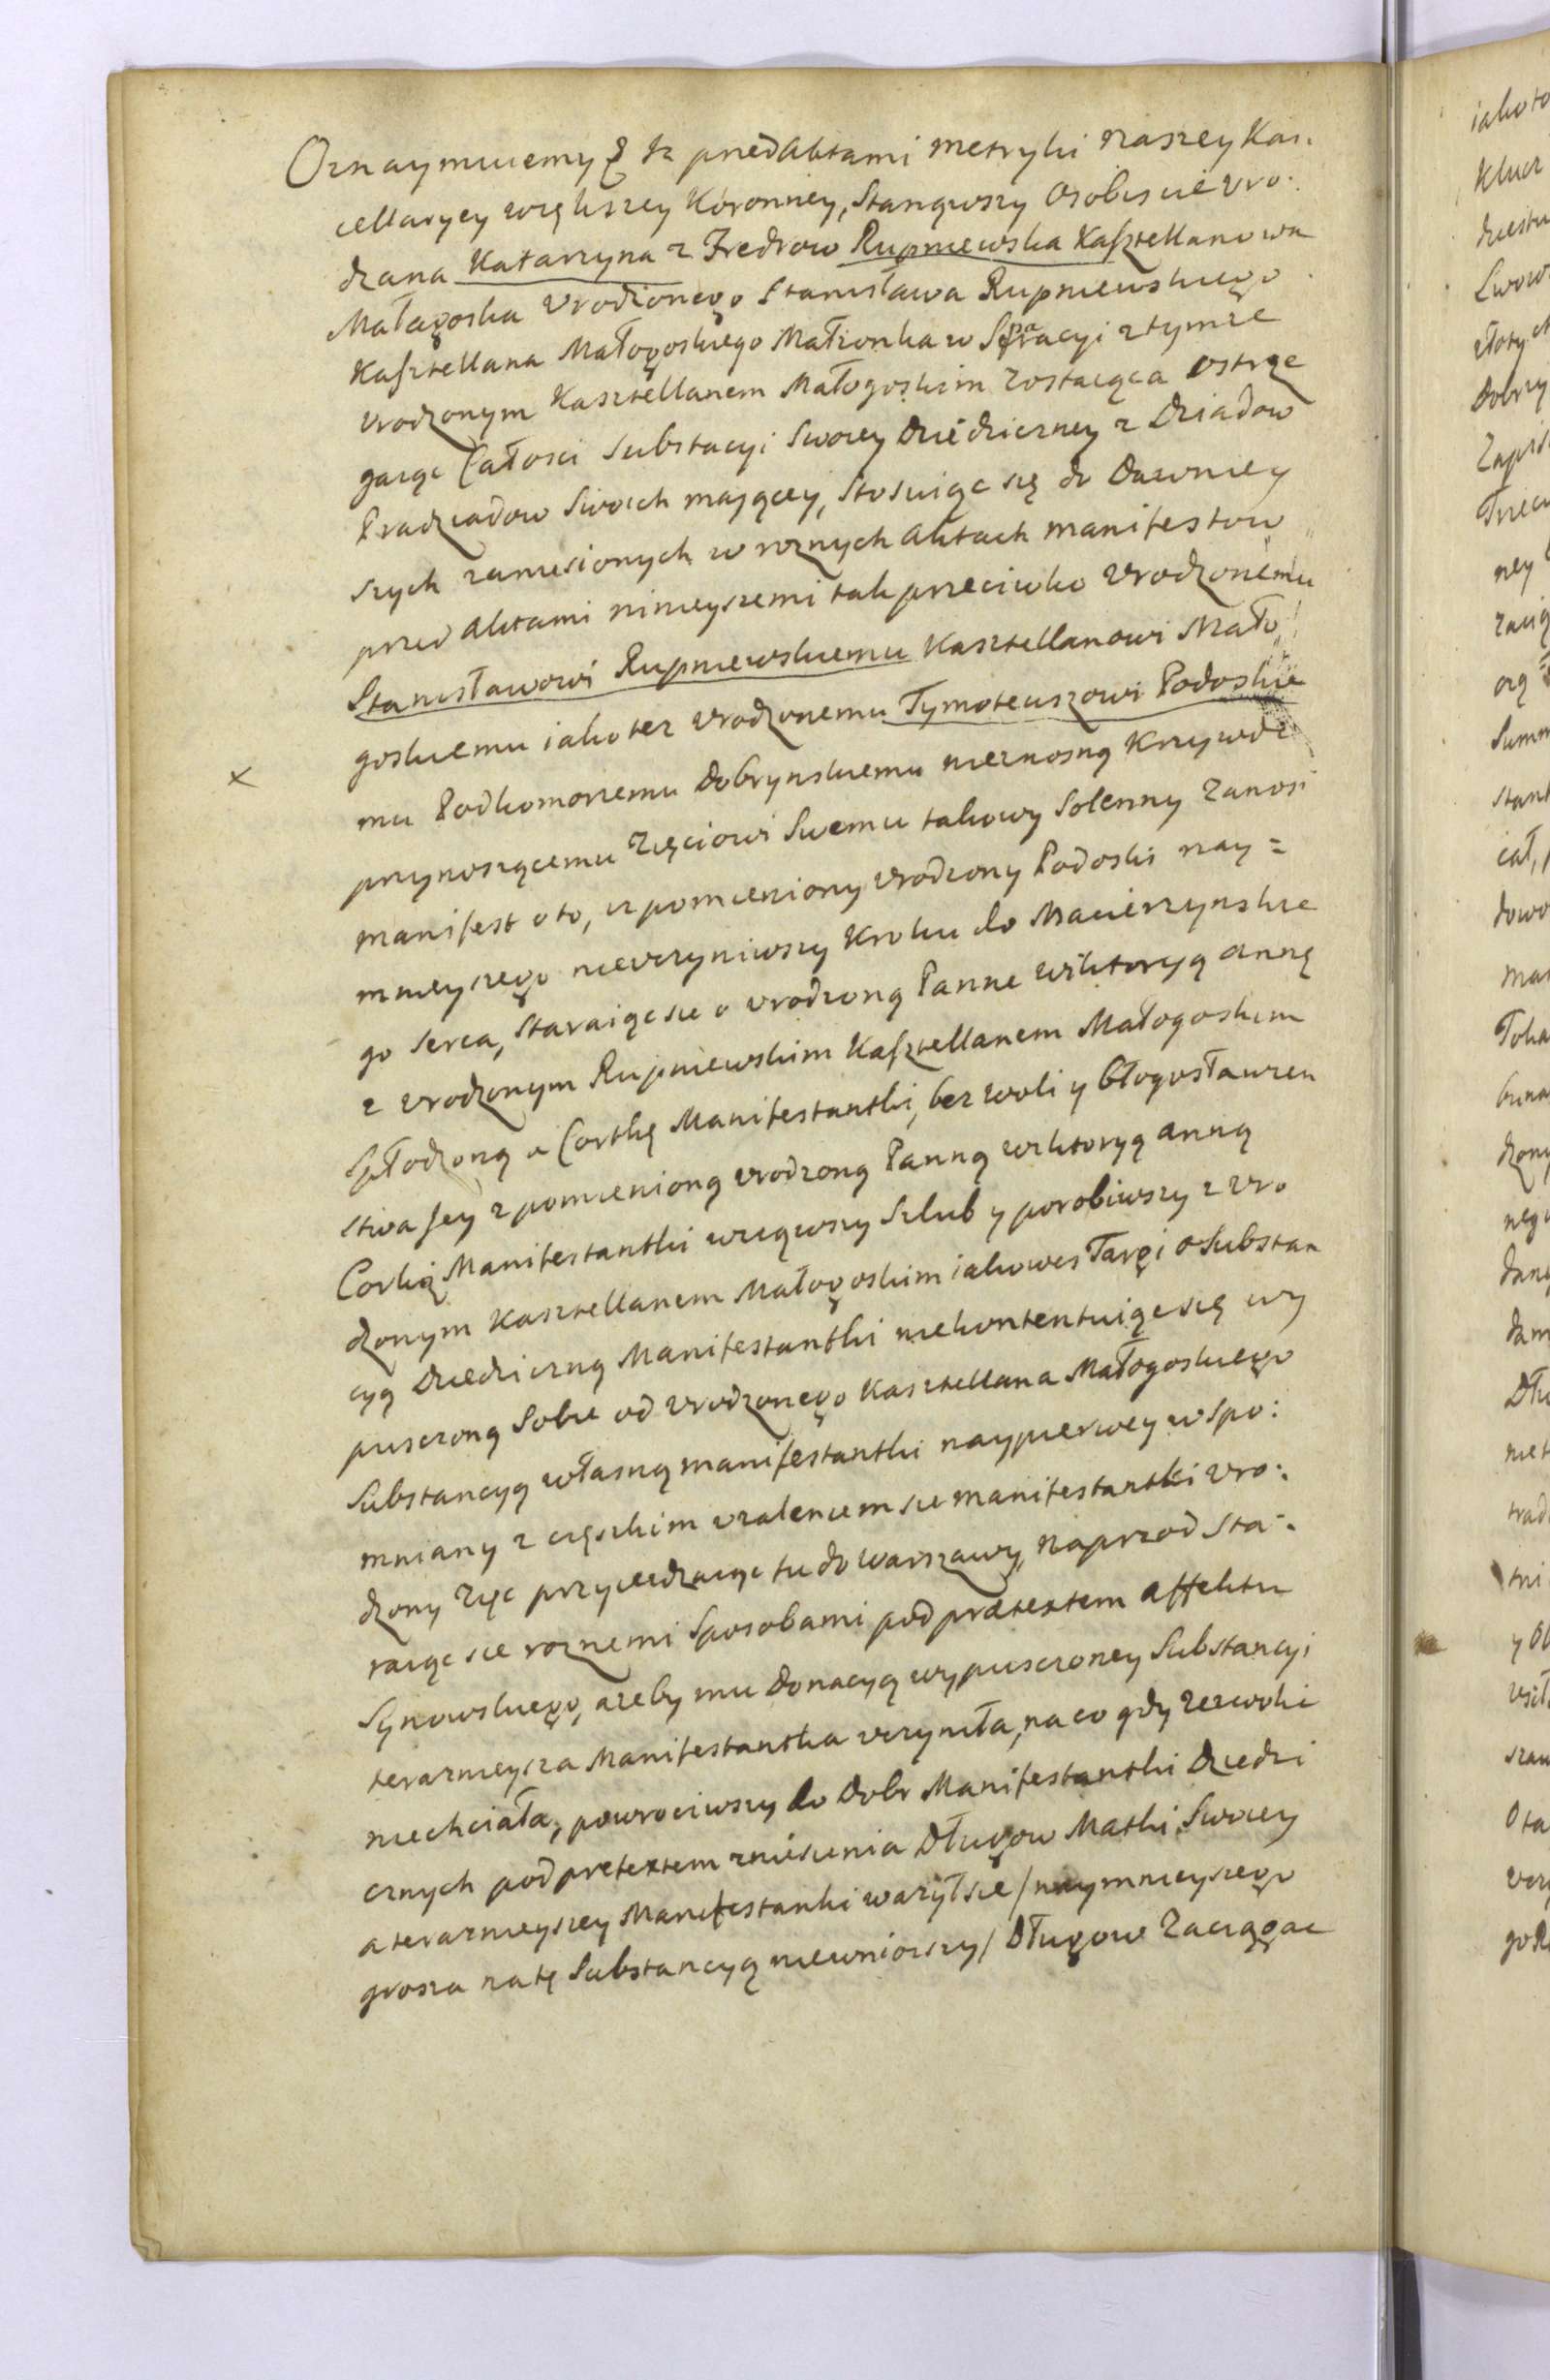 Oznaymuiemy & Iz przed Aktami metryki naszey Kan.
cellaryey większey Koronney, Stanąwszy Osobiscie Uro:
dzana Katarzyna z Fredrow Rupniewska Kasztellanowa
Małagoska Urodzonego Stanisława Rupniewskiego
Kasztellana Małogoskiego Małzonka w Separacyi z tymze
Urodzonym Kasztellanem Małogoskim zostaiąca ostrze
gaiąc Całosci Substacyi Swoiey Dziedziczney z Dziadow
Pradziadow Swoich maiącey, Stosuiąc się do Dawniey
szych zaniesionych w roznych Aktach manifestow
przed Aktami ninieyszemi tak przeciwko Urodzonemu
Stanisławowi Rupniewskiemu Kasztellanowi Mało
goskiemu iako tez Urodzonemu Tymoteuszowi Podoskie
mu Podkomorzemu Dobrynskiemu nieznosną Krzywdę
przynoszącemu Zięciowi Swemu takowy Solenny zanosi
manifest o to, iz pomieniony Urodzony Podoski nay=
mnieyszego nieuczyniwszy Kroku do Macierzynskie
go Serca, Staraiąc sie o Urodzoną Panne Wiktoryą Annę
z Urodzonym Rupniewskim Kasztellanem Małogoskim
Spłodzoną a Corkę Manifestantki, bez woli y błogosławien
stwa Jey z pomienioną Urodzoną Panną Wiktoryą Anną
Corką Manifestantki wziąwszy Szlub y porobiwszy z Uro
dzonym Kasztellanem Małogoskim iakowes Targi o Substan
cyą Dziedziczną Manifestantki niekontentuiąc się wy
puszczoną Sobie od Urodzonego Kasztellana Małogoskiego
Substancyą własną manifestantki naypierwey wspo:
mniany z cięszkim uzaleniem sie manifestantki Uro:
dzony Zięc przyiezdzaiąc tu do Warszawy, naprzod Sta:
raiąc sie roznemi Sposobami pod praetextem affektu
Synowskiego, azeby mu Donacyą wypuszczoney Substancyi
terazneysza Manifestantka uczyniła, na co gdy zezwolic
niechciała, powrociwszy do Dobr Manifestantki Dziedzi
cznych pod pretextem zniesienia Długow Matki Swoiey
a terazneyszey Manifestantki wazył sie / naymnieyszego
grosza na tę Substancyą niewniozszy / Długow Zaciągac